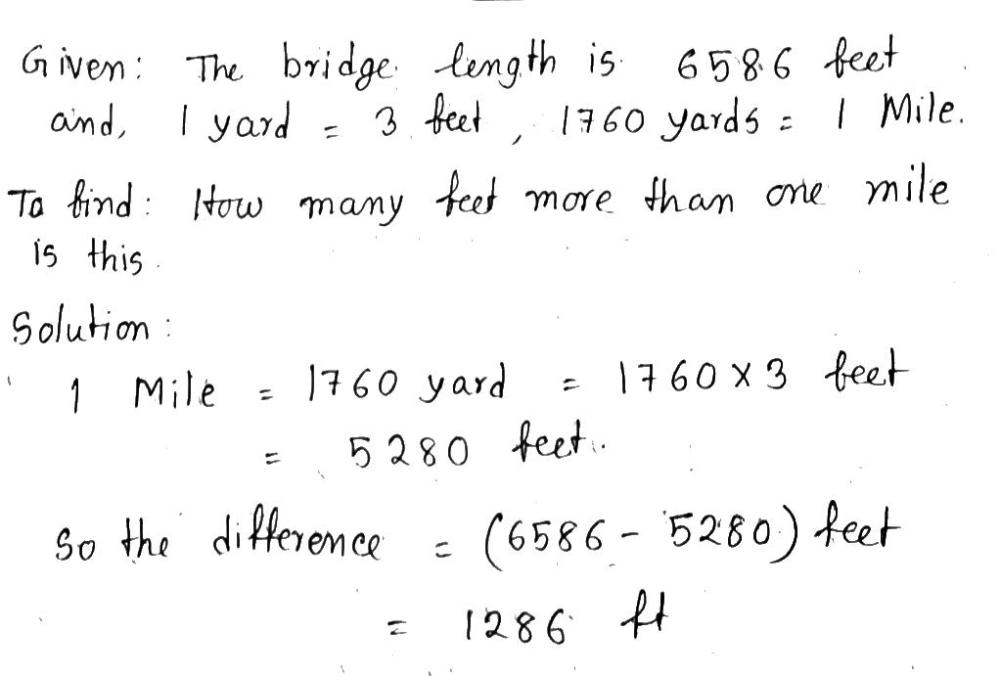 Given: The bridge length is 6586 feet
and, 1 yard = 3 feet, 1760 yards = 1 Mile.
To find: How many feet more than one mile
is this.
Solution:
1 Mile = 1760 yard = 1760 x 3 feet
= 5280 feet.
So the difference = (6586 - 5280) feet
= 1286 ft